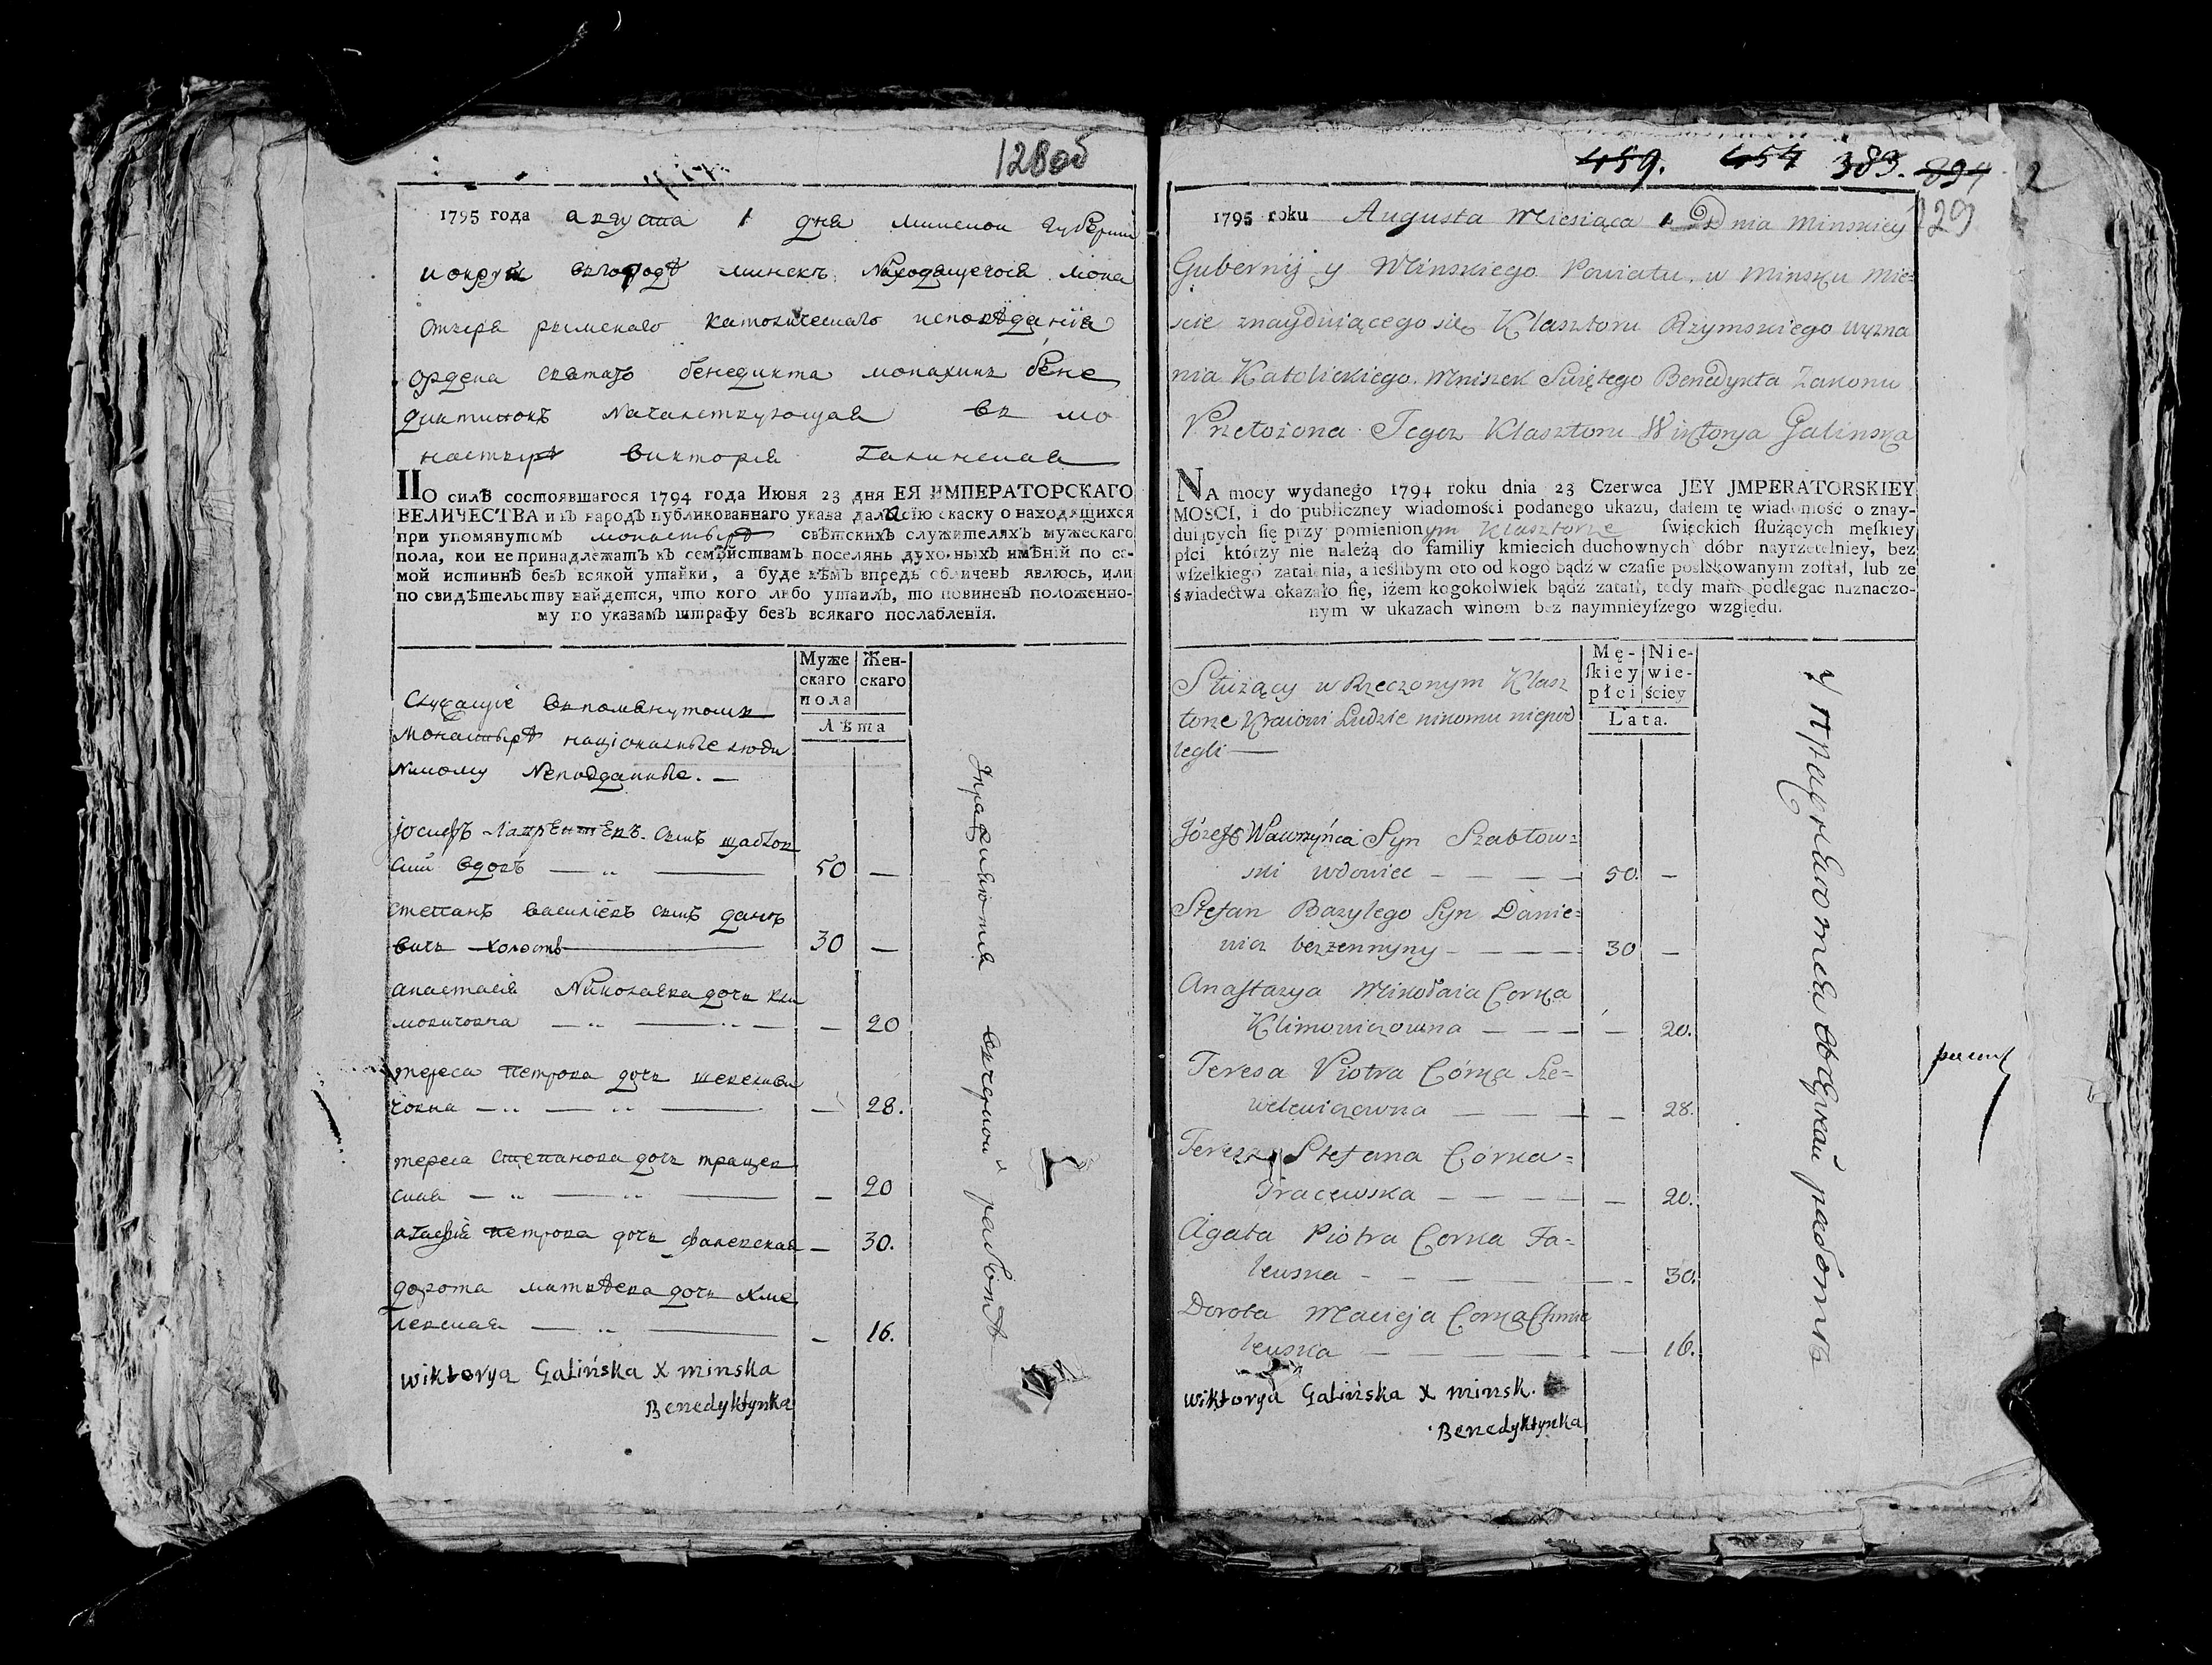 128об
1795 года августа 1 дня минской губернии
и округи въ городѣ минскѣ находящегося мона
стыря римскаго католическаго исповѣданія
ордена святаго бенедикта монахинь бене
диктинокъ начальствующая въ мо
настырѣ викторія галинская
ПО силѣ состоявшагося 1794 года Июня 23 дня ЕЯ ИМПЕРАТОРСКАГО
ВЕЛИЧЕСТВА и въ народъ публикованнаго указа дала сію скаску о находящихся
при упомянутомъ монастырѣ свѣтскихъ служителяхъ мужескаго
пола, кои не принадлежатъ къ семѣйствамъ поселянъ духовныхъ имѣній по са-
мой истиннѣ безъ всякой утайки, а буде кѣмъ впредь обличенъ явлюсь, или
по свидѣтельству найдется, что кого либо утаилъ, то повиненъ положенно-
му по указамъ штрафу безъ всякаго послабленія.
Муже Жен-
скаго скаго
пола
Лѣта
Служащіе въ помянутомъ
монастырѣ націоналные люди
никому неподданные. —
іосифъ лаврентѣевъ сынъ щаблов
скій вдовъ — 50 —
степанъ василіевъ сынъ дание
вичь холостъ 30 —
анастасія николаева дочь кли
мовичовна — 20
тереса петрова дочь шевелеви
човна — 28.
тереса степанова дочь трацев
ская — 20
агафія петрова дочь фалевская — 30.
дорота матвѣева дочь хме
левская — 16.
wiktorya Galińska X minska
Benedyktynka
въ черной работѣ
459. 454 383. 394 2
129
1795 roku Augusta Miesiąca 1 Dnia Minskiey
Gubernij y Minskiego Powiatu, w Minsku Mie=
scie znayduiącego się Klasztoru Rzymskiego wyzna
nia Katolickiego Mniszek Swiętego Benedykta Zakonu
Przełożona Tegoz Klasztoru Wiktorya Galinska
NA mocy wydanego 1794 roku dnia 23 Czerwca JEY JMPERATORSKIEY
MOSCI, i do publiczney wiadomości podanego ukazu, dałem tę wiadomość o znay-
duiących się przy pomienionym Klasztorze świeckich służących męskiey
płci którzy nie należą do familiy kmiecich duchownych dóbr nayrzetelniey, bez
wszelkiego zataienia, a ieślibym oto od kogo bądź w czasie poszlakowanym został, lub ze
świadectwa okazało się, iżem kogokolwiek bądź zataił, tedy mam podlegac naznaczo-
nym w ukazach winom bez naymnieyszego względu.
Mę- Nie-
skiey wie-
płci ściey
Lata.
Służący w Rzeczonym Klasz
torze Kraiowi Ludzie nikomu niepod
legli —
Józeff Wawrzyńca Syn Szabłow=
ski wdowiec — 50. —
Stefan Bazylego Syn Danie=
wicz bezzennyny — 30 —
Anastazya Mikołaia Corka
Klimowiczowna — 20.
Teresa Piotra Córka Sze=
welewiczowna — 28.
Teressa Stefana Córka=
Tracewska — 20.
Agata Piotra Corka Fa=
lewska — 30.
Dorota Macieja Corka Chmie
lewska — 16.
wiktorya Galińska X minsk.
Benedyktynka